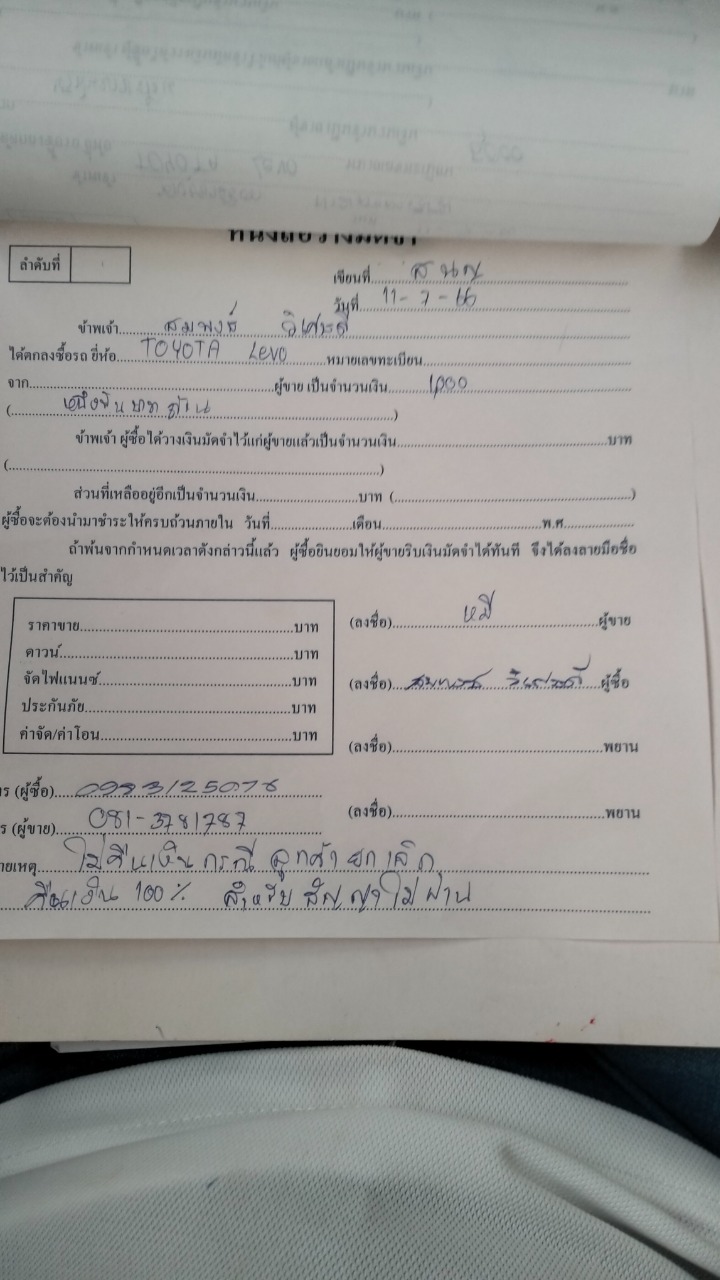 หนังสือวางมัดจำ
ลำดับที่
เขียนที่
วันที่ 11-7-66
ข้าพเจ้า สมพงธ์
ได้ตกลงซื้อรถ ยี่ห้อ TOYOTA Levo หมายเลขทะเบียน
จาก ผู้ขาย เป็นจำนวนเงิน 1,000
( หนึ่งพันบาทถ้วน )
ข้าพเจ้า ผู้ซื้อได้วางเงินมัดจำไว้แก่ผู้ขายแล้วเป็นจำนวนเงิน บาท
( )
ส่วนที่เหลืออยู่อีกเป็นจำนวนเงิน บาท ( )
ผู้ซื้อจะต้องนำมาชำระให้ครบถ้วนภายใน วันที่ เดือน พ.ศ.
ถ้าพ้นจากกำหนดเวลาดังกล่าวนี้แล้ว ผู้ซื้อยินยอมให้ผู้ขายริบเงินมัดจำได้ทันที จึงได้ลงลายมือชื่อ
ไว้เป็นสำคัญ
ราคาขาย บาท
ดาวน์ บาท
จัดไฟแนนซ์ บาท
ประกันภัย บาท
ค่าจัด/ค่าโอน บาท
(ลงชื่อ) หมี ผู้ขาย
(ลงชื่อ) ผู้ซื้อ
(ลงชื่อ) พยาน
(ลงชื่อ) พยาน
ร (ผู้ซื้อ)
ร (ผู้ขาย) 081-3781787
ายเหตุ ไม่คืนเงินกรณี ลูกค้ายกเลิก
คืนเงิน 100% สำหรับ สัญญาไม่ผ่าน